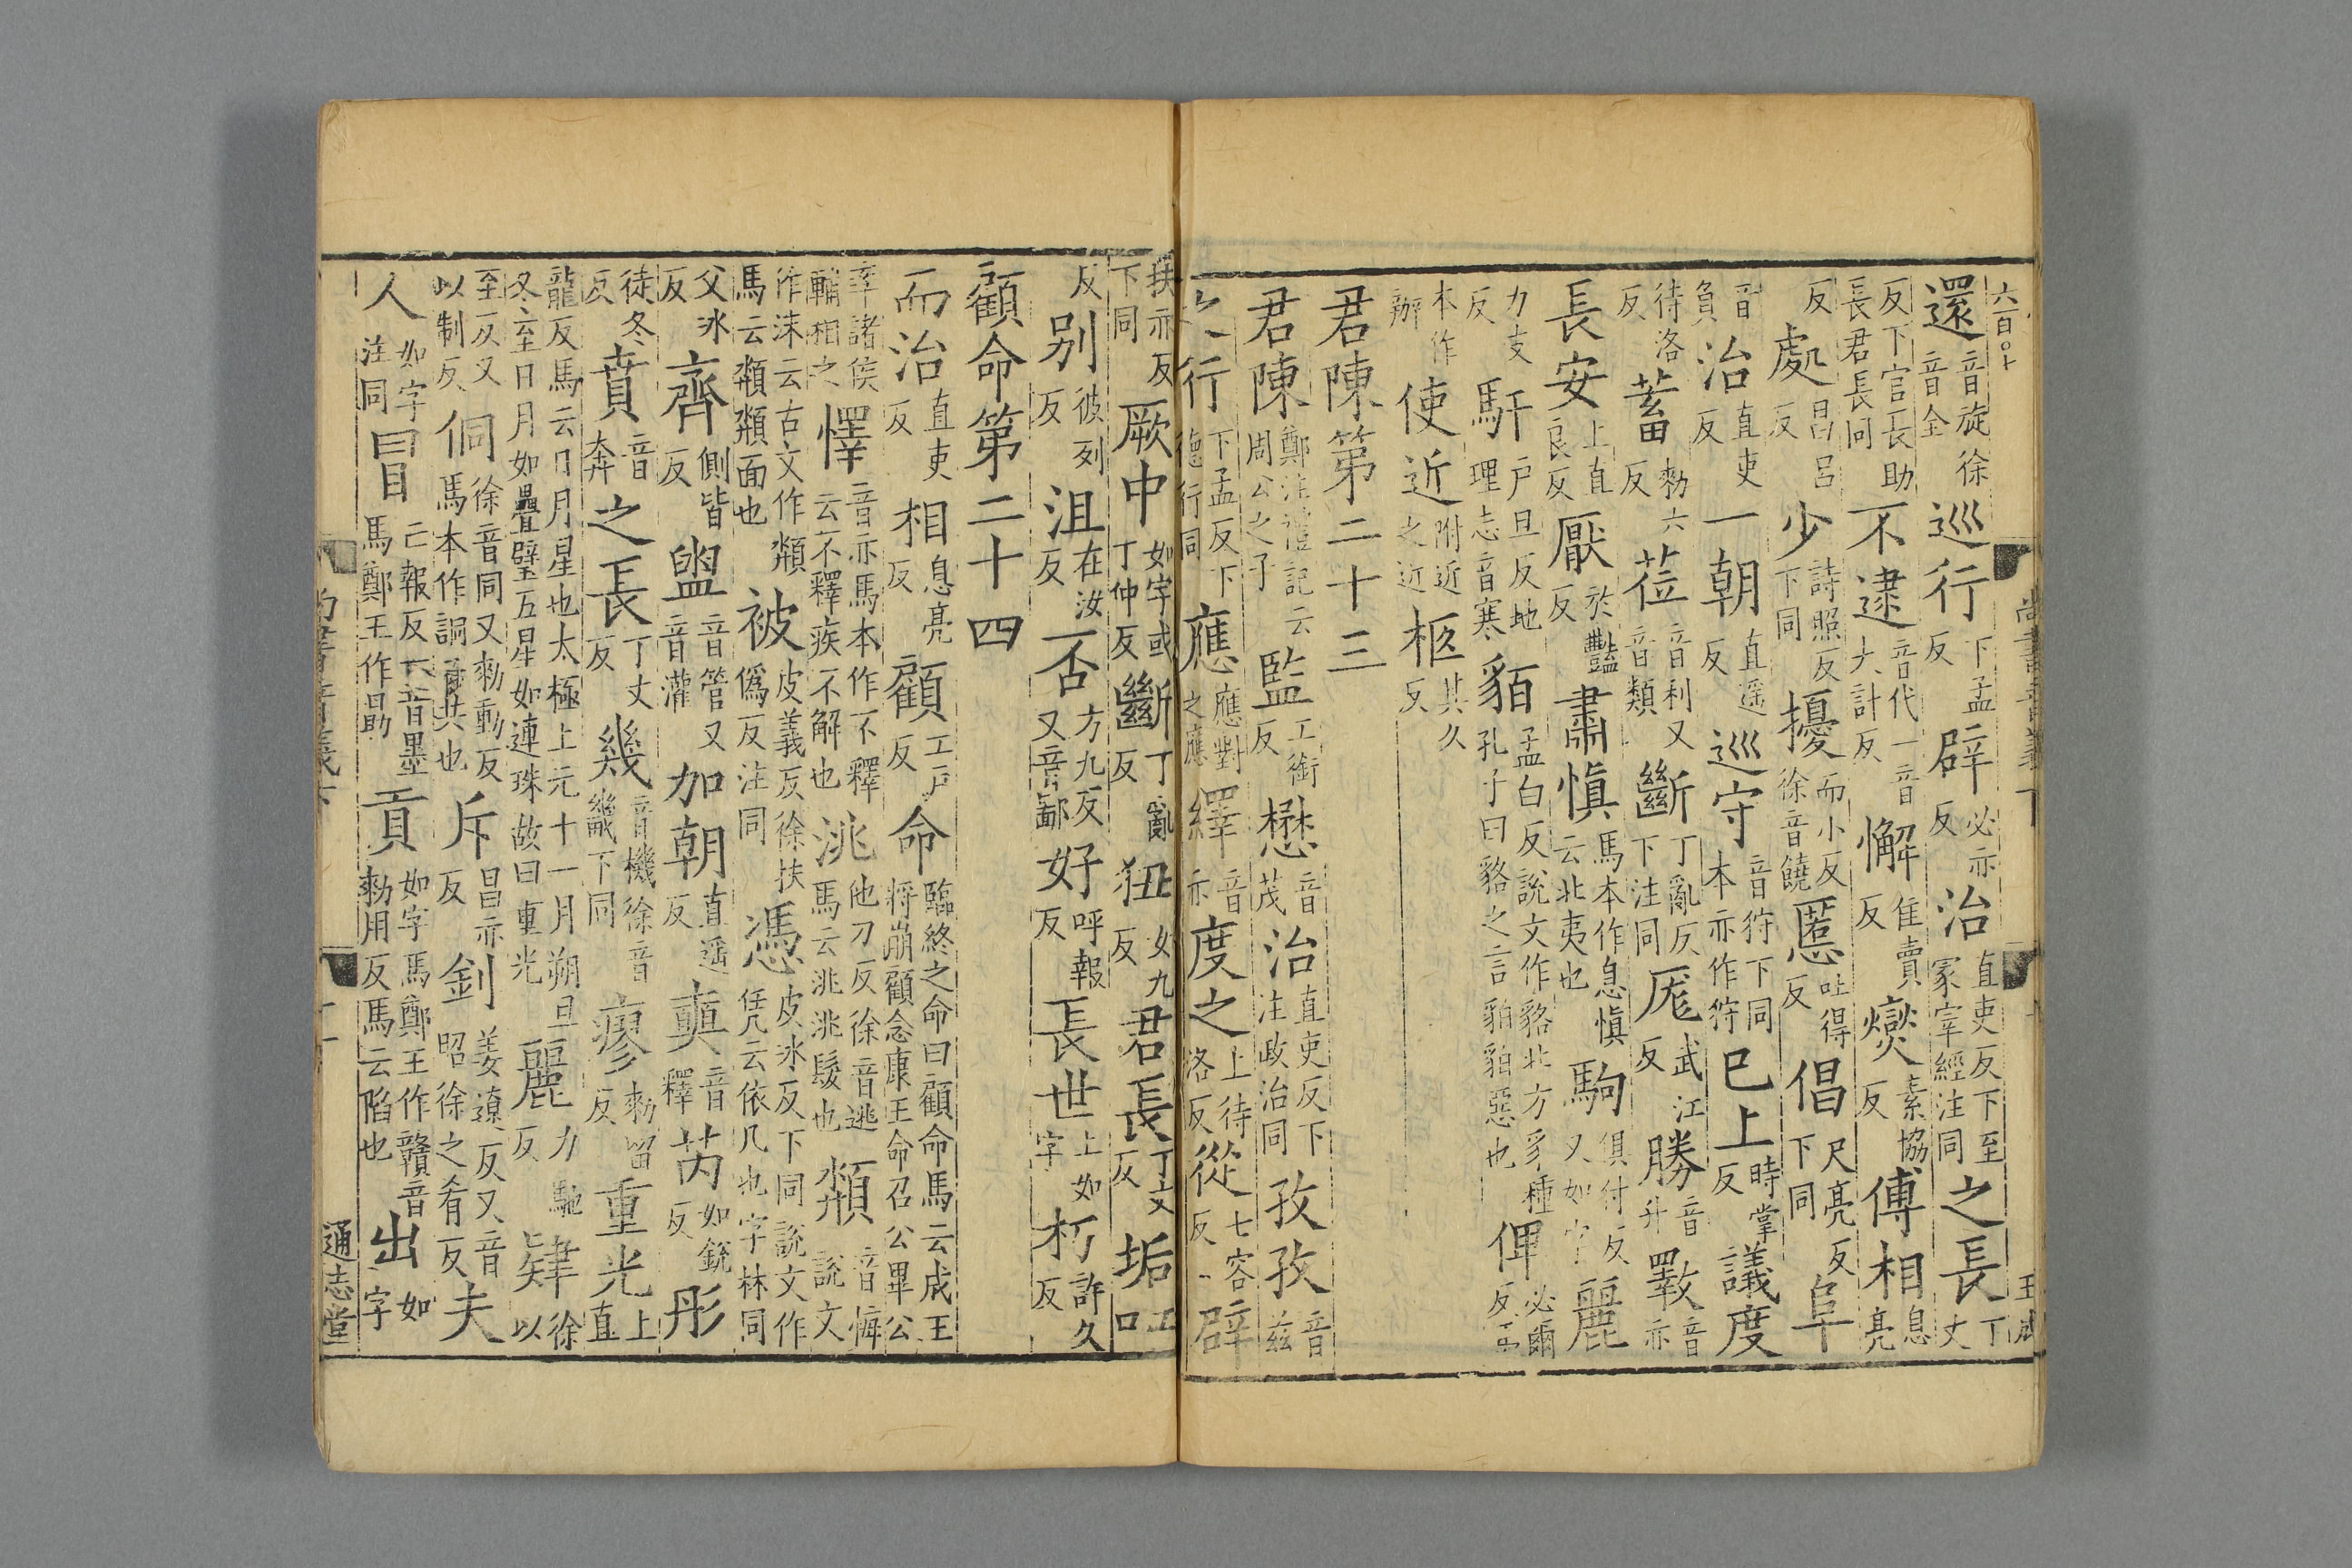 六百〇
還音旋徐音全巡行下孟反辟必亦反治直吏反下至冢宰經注同之長丁丈
反下官長助長君長同不逮音代一音大計反懈隹賣反爕素協反傅相息亮
反處昌呂反少詩照反下同擾而小反徐音饒慝吐得反倡尺亮反下同阜
音負治直吏反一朝直遥反巡守音狩下同本亦作狩已上時掌反議度
待洛反蓄勑六反莅音利又音類斷丁亂反下注同厖武江反勝音升斁音亦
長安上直良反厭於豔反肅慎馬本作息慎云北夷也駒俱付反又如字麗
力支反馯户旦反地理志音寒貊孟白反說文作貉北方豸種孔子曰貉之言貊貊惡也俾必爾反馬
本作辦使近附近之近柩其久反
君陳第二十三
君陳鄭注禮記云周公之子監工銜反懋音茂治直吏反下注政治同孜孜音兹
行下孟反下德行同應應對之應繹音亦度之上待洛反從七容反辟
扶亦反下同厥中如字或丁仲反斷丁亂反狃女九反君長丁丈反垢工口
反别彼列反沮在汝反否方九反又音鄙好呼報反長世上如字朽許久反
顧命第二十四
而治直吏反相息亮反顧工户反命臨終之命曰顧命馬云成王將崩顧念康王命召公畢公
率諸侯輔相之懌音亦馬本作不釋云不釋疾不解也洮他刀反徐音逃馬云洮洮髮也頮音悔說文
作沬云古文作頮馬云頮頮面也被皮義反徐扶偽反注同憑皮冰反下同說文作凭云依几也字林同
父冰反齊側皆反盥音管又音灌加朝直遥反奭音釋芮如銳反彤
徒冬反賁音奔之長丁丈反幾音機徐音畿下同瘳勑留反重光上直
龍反馬云日月星也太極上元十一月朔旦冬至日月如疊璧五星如連珠故曰重光麗力馳反肄徐以
至反又以制反侗徐音同又勑動反馬本作詷云共也斥昌亦反釗姜遼反又音昭徐之肴反夫
人如字注同冒亡報反一音墨馬鄭王作勖貢如字馬鄭王作贛音勑用反馬云陷也出如字
通志堂